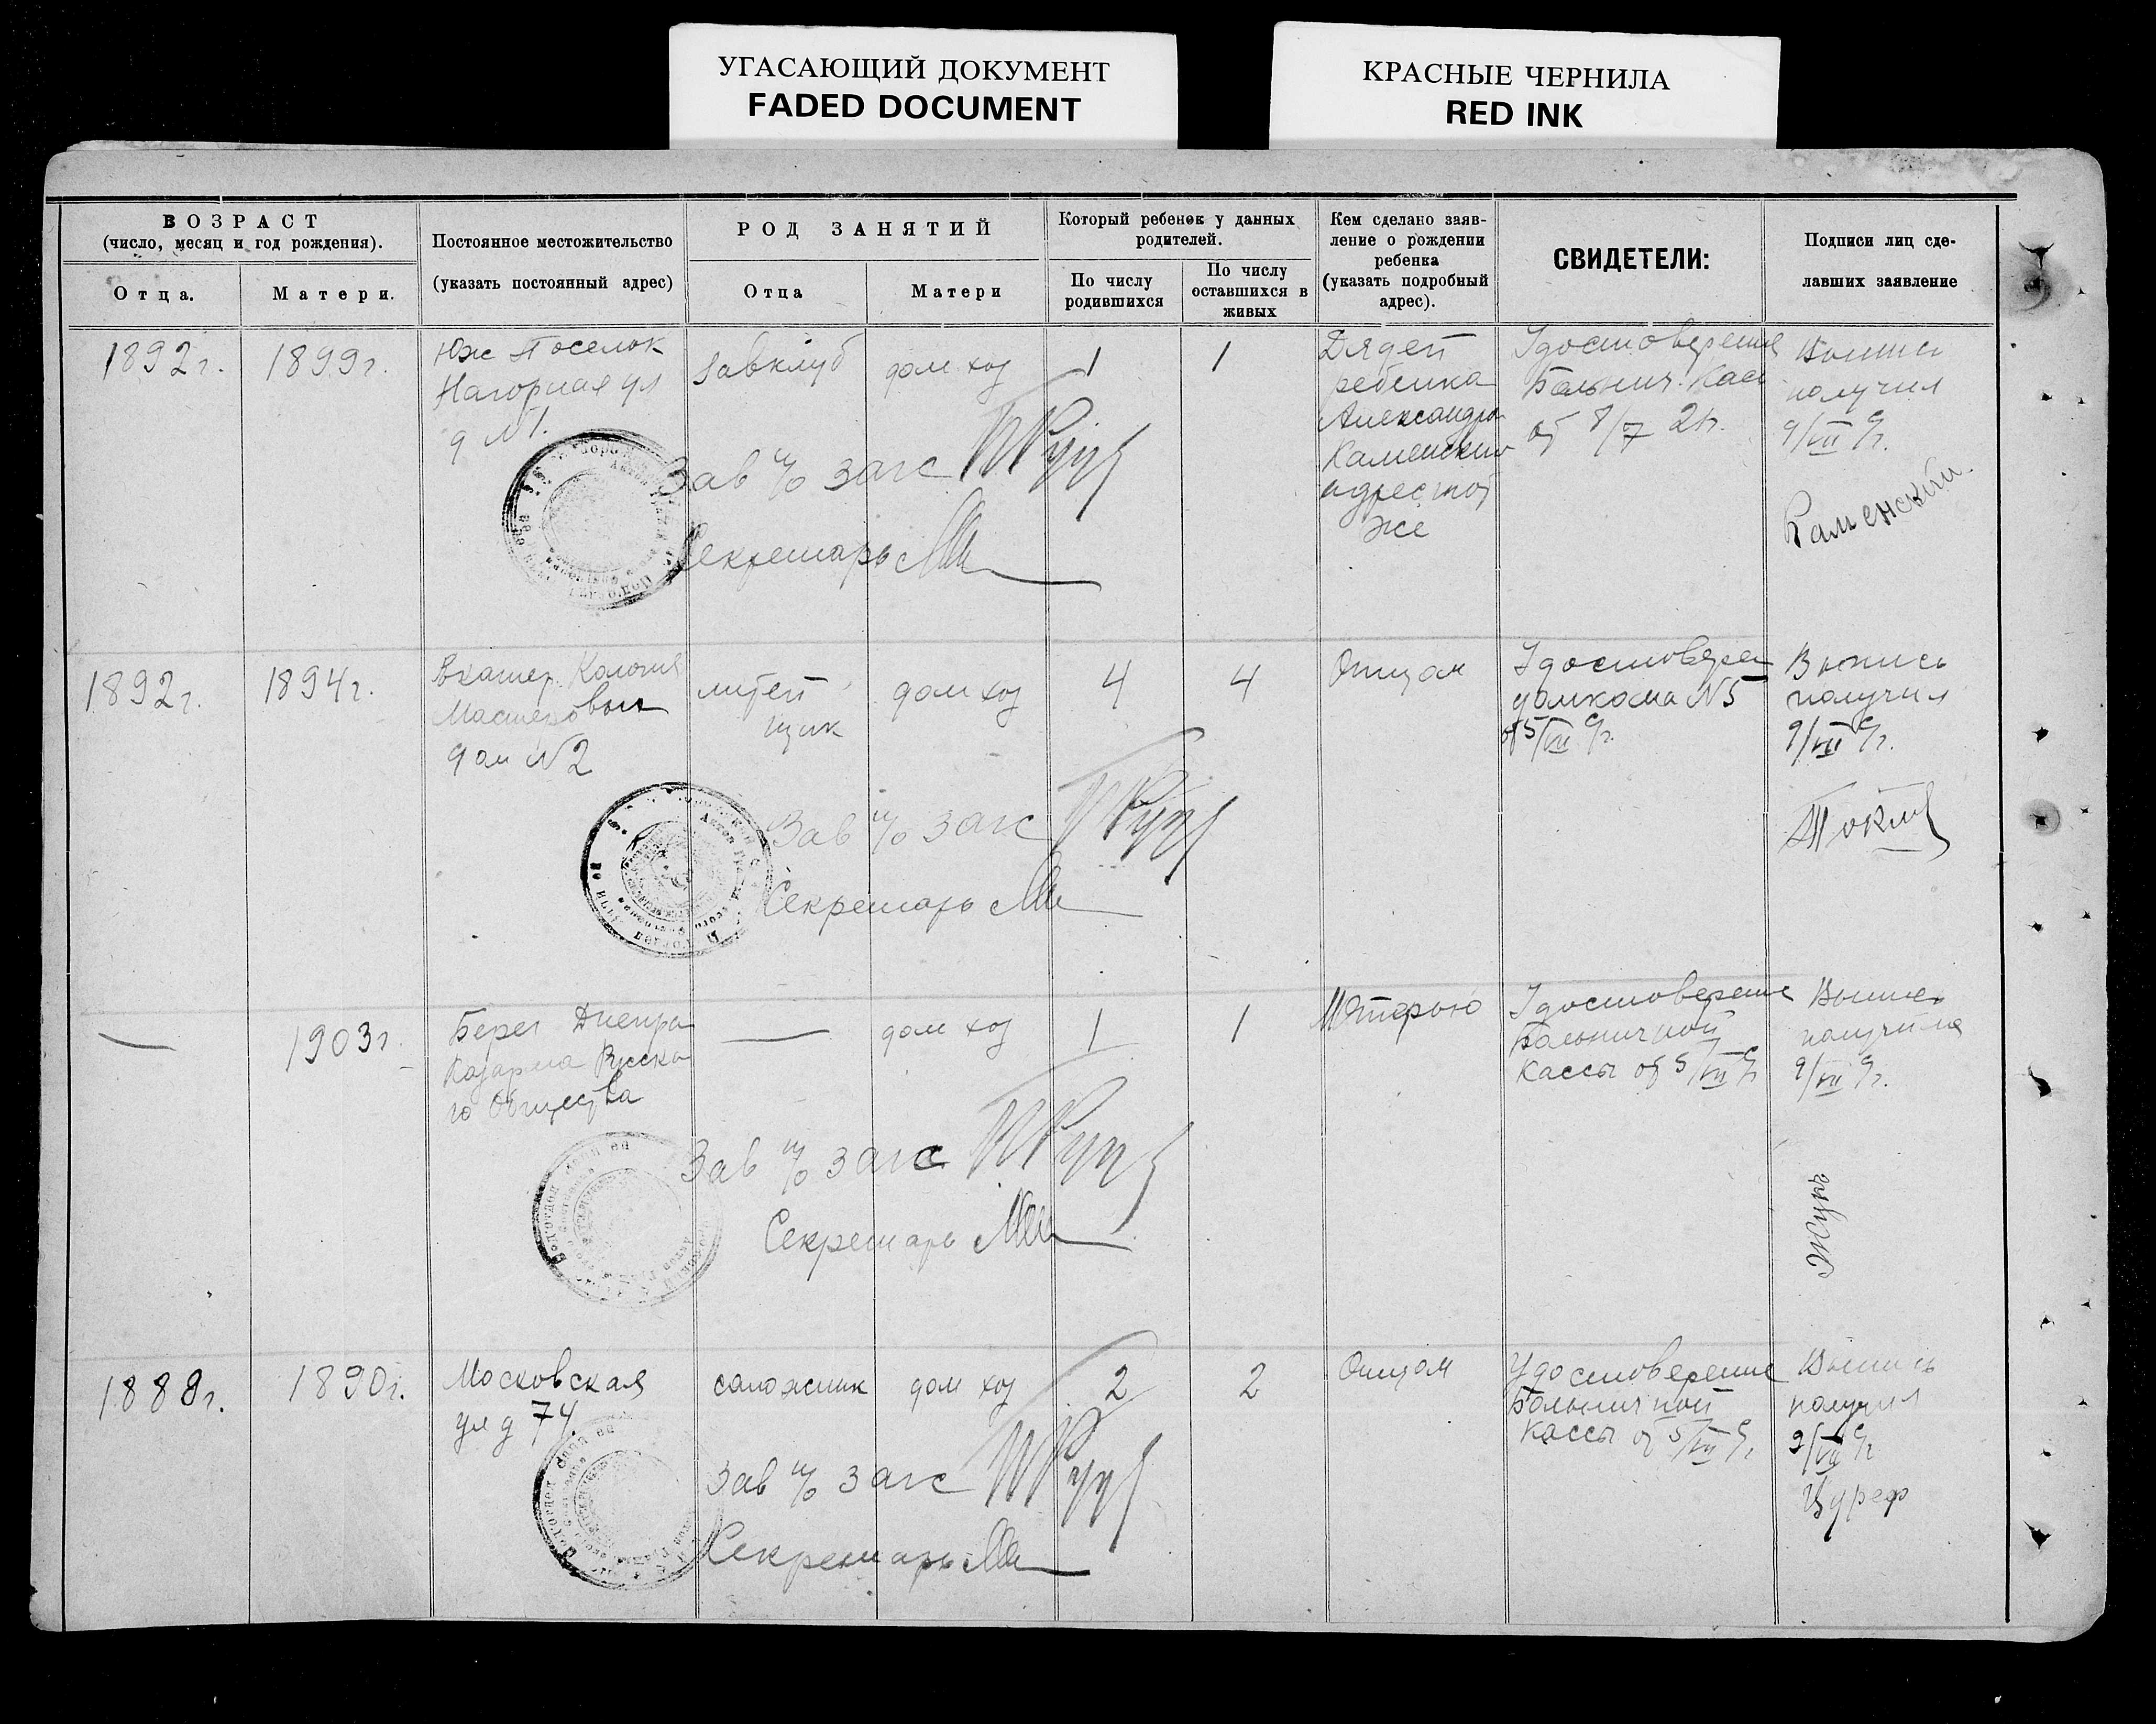 УГАСАЮЩИЙ ДОКУМЕНТ
FADED DOCUMENT
КРАСНЫЕ ЧЕРНИЛА
RED INK
ВОЗРАСТ
(число, месяц и год рождения).
Отца.
Матери.
Постоянное местожительство
(указать постоянный адрес)
РОД ЗАНЯТИЙ
Отца
Матери
Который ребенок у данных
родителей.
По числу
родившихся
По числу
оставшихся в
живых
Кем сделано заяв-
ление о рождении
ребенка
(указать подробный
адрес).
СВИДЕТЕЛИ:
Подписи лиц сде-
лавших заявление
1892г.
1899г.
Юж Поселок
Нагорная ул
д №1.
Завклуб
дом хоз
1
1
Дядей
ребенка
Александр
Каменским
адрес тот
же
Удостоверения
Больнич. Касс
от 8/7 24.
Выпись
получил
9/VII 9г.
Каменский.
Зав п/о загс
Секретарь
1892г.
1894г.
Екатер. Колония
Мастеровых
дом №2
литей
щик
дом хоз
4
4
Отцом
Удостоверен
домкома №5
от 5/VII 9г.
Выпись
получил
9/VII 9г.
Зав п/о загс
Секретарь
—
1903г
Берег Днепра
Казарма Русско
го Общества
—
дом хоз
1
1
Матерью
Удостоверение
Больничной
Кассы от 5/VII 9г
Выпись
получила
9/VII 9г.
Зав п/о загс
Секретарь
1888г.
1890г.
Московская
ул д 74.
сапожник
дом хоз
2
2
Отцом
Удостоверение
Больничной
Кассы от 5/VII 9г
Выпись
получил
9/VII 9г
Зав п/о загс
Секретарь